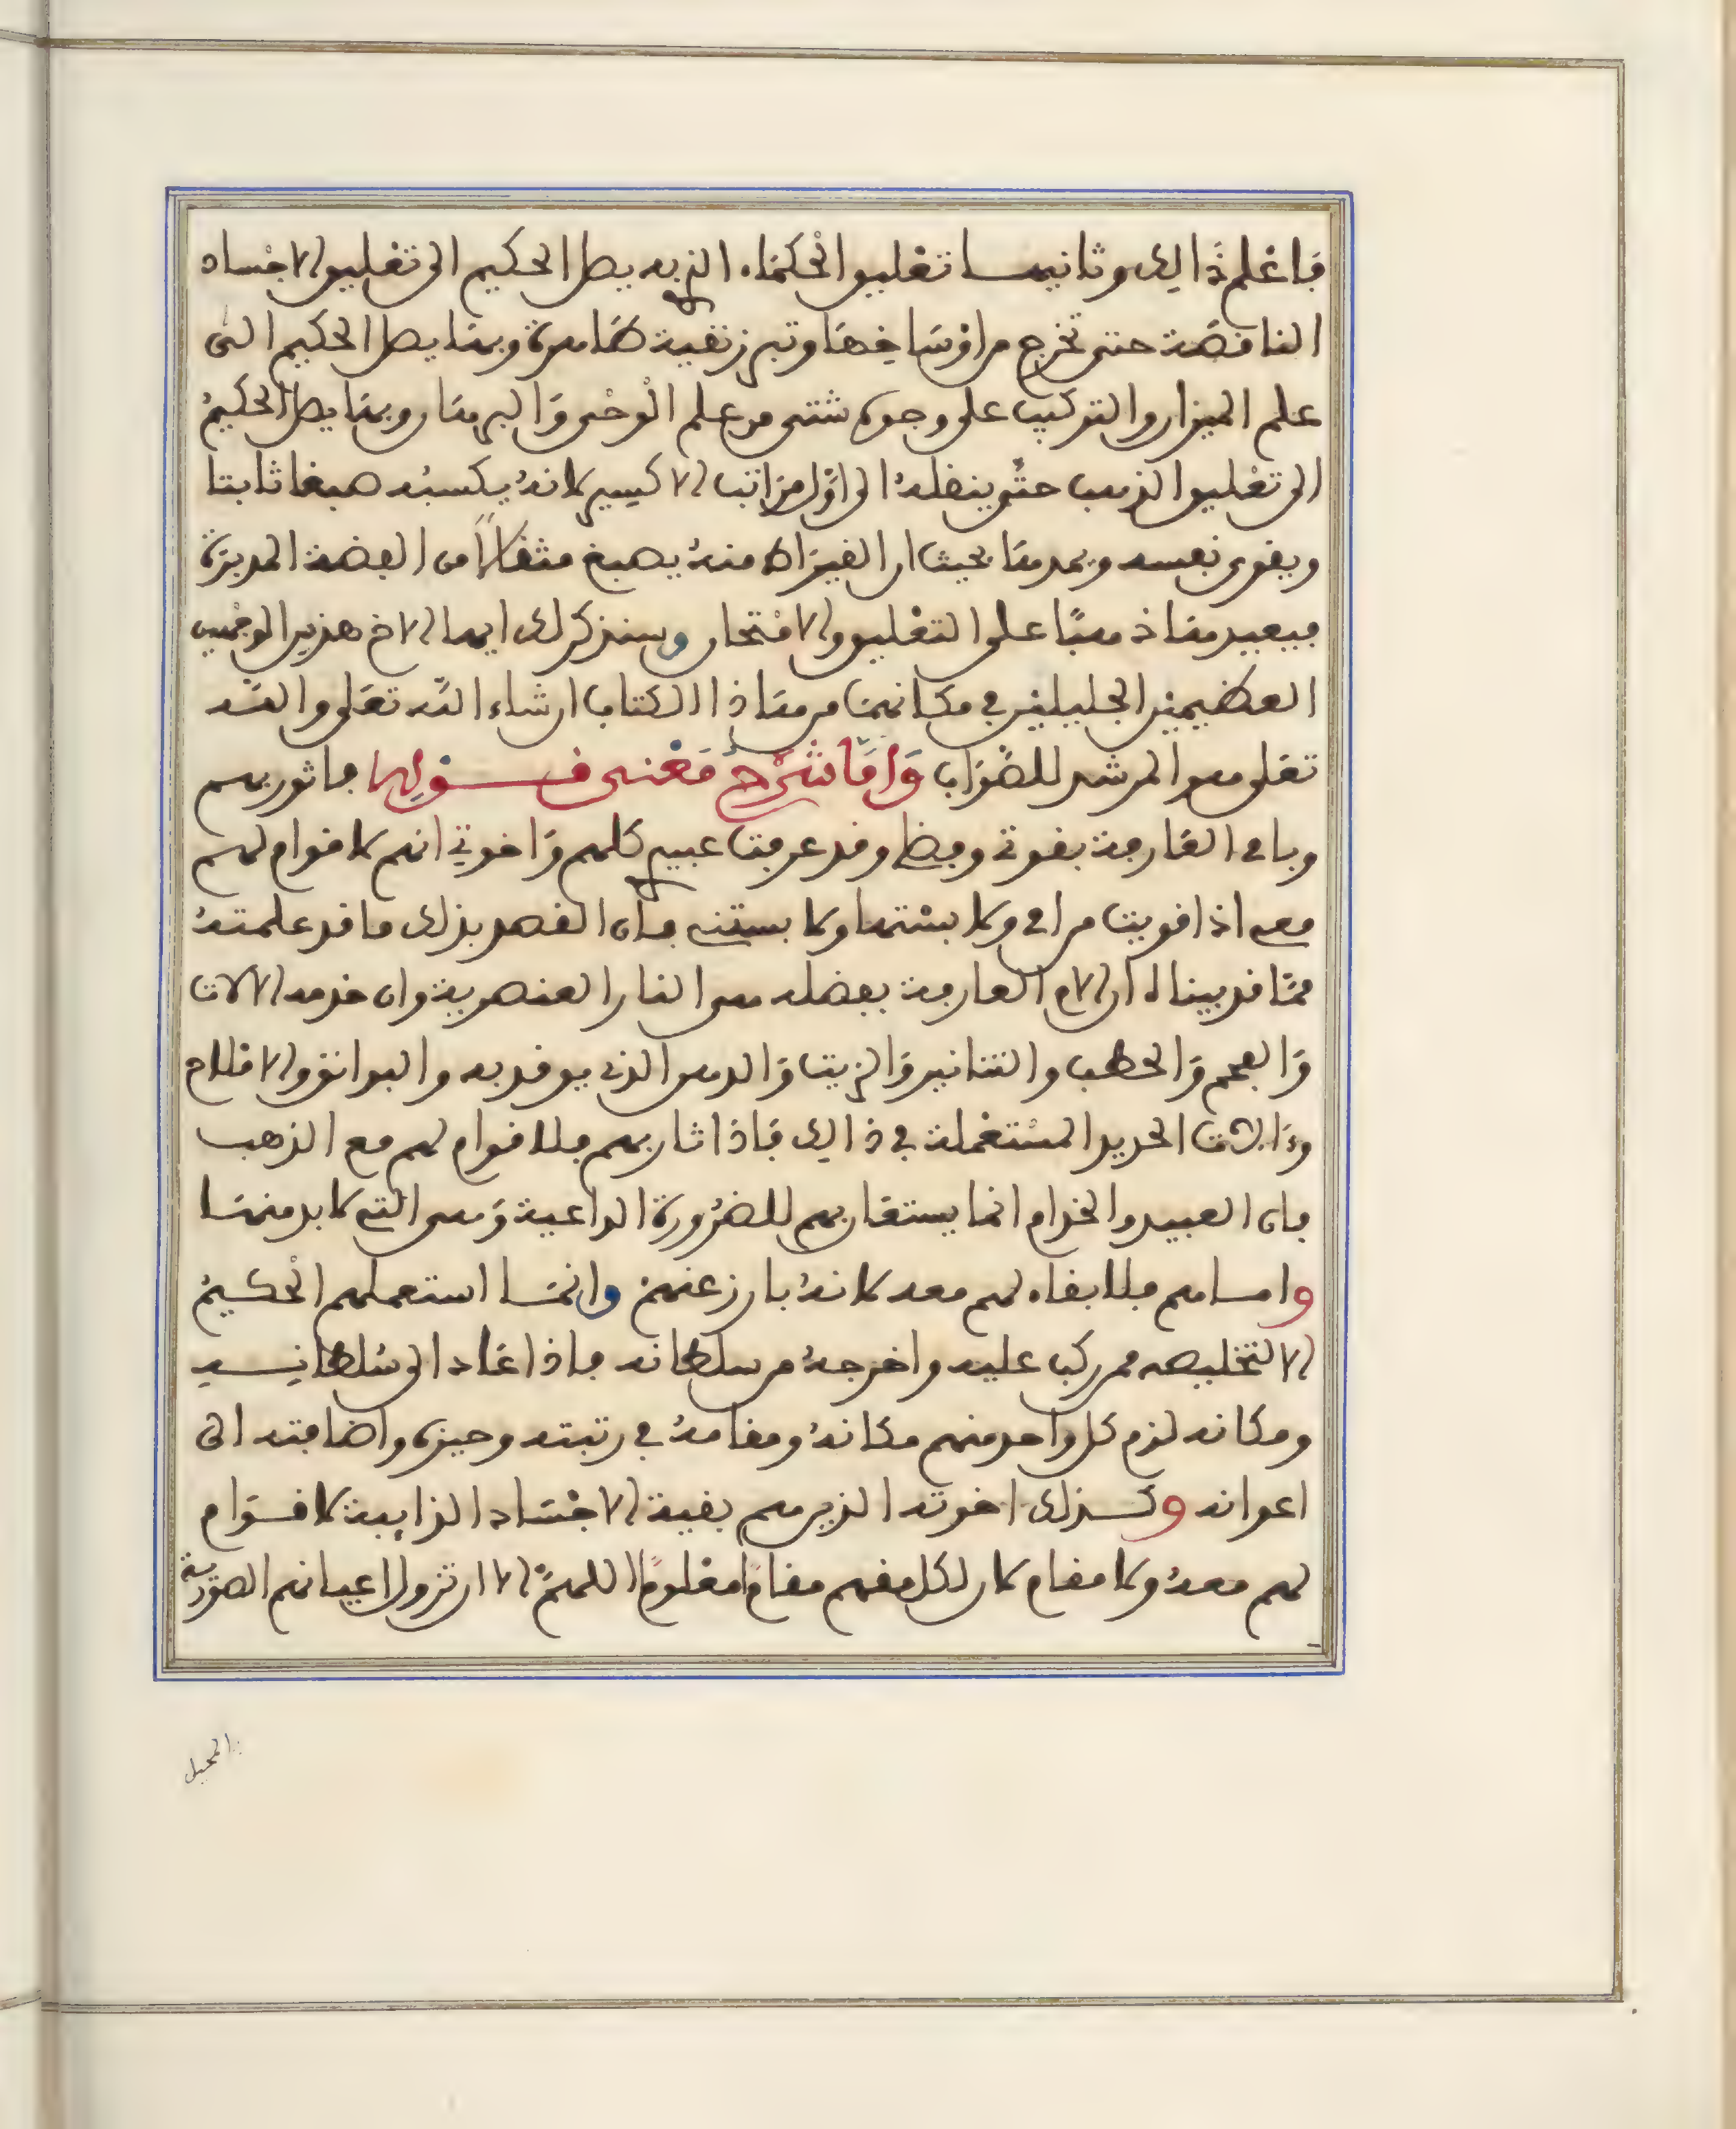 فاعلم ذالك وثانيهما تغليو الحكماء الذي به يصل الحكيم الى تغليو الاجساد
الناقصة حتى تخرج من اوساخها وتبرز نقية طاهرة وبها يصل الحكيم الى
علم الميزان والتركيب على وجوه شتى من علم الوحى والبرهان وبها يصل الحكيم
الى تغليو الذهب حتى ينقله الى اول مراتب الاكسير لانه يكسبه صبغا ثابتا
ويقوى نفسه ويمدها بحيث ان القيراط منه يصبغ مثقالا من الفضة المدبرة
فيعيد هاذهبا على التغليو والامتحان وسنذكر لك ايها الاخ هذين الوجهين
العظيمين الجليلين في مكانهما من هاذا الكتاب ان شاء الله تعلى والله
تعلى هو المرشد للصواب واما شرح معنى قولها فاثوربهم
وبامى الغارمة بقوتى وقد عرفت عبيدي كلهم واخوتي انهم لا قوام لهم
معى اذا قويت من امى ولا بستها ولا بستنى فان القصد بذلك ما قد علمته
مما قد بيناه ان الام الغارمة بفضله هى النار العنصرية وان خدمه الالات
والفحم والحطب والتنانير والزيت والدهن الذي يوقد به والبوانق والاقلام
وءالات الحديد المستعملة في ذالك فاذا ثار بهم فلا قوام لهم مع الذهب
فان العبيد والخدام انما يستقا ربهم للضرورة الداعية وهى التى لابد منها
واما هم فلا بقاء لهم معه لانه بارز عنهم وانما استعملهم الحكيم
الا لتخليصه ممن ركب عليه واخرجه من سلطانه فاذا عاد الى سلطانه
ومكانه لزم كل واحد منهم مكانه ومقامه في رتبته وحيزه واضافته الى
اعوانه وكذلك اخوته الذين هم بقية الاجساد الذايبة لا قوام
لهم معه ولا مقام لان لكل منهم مقاما معلوما اللهم الا ان تزول اعيانهم الصورية
المحيل